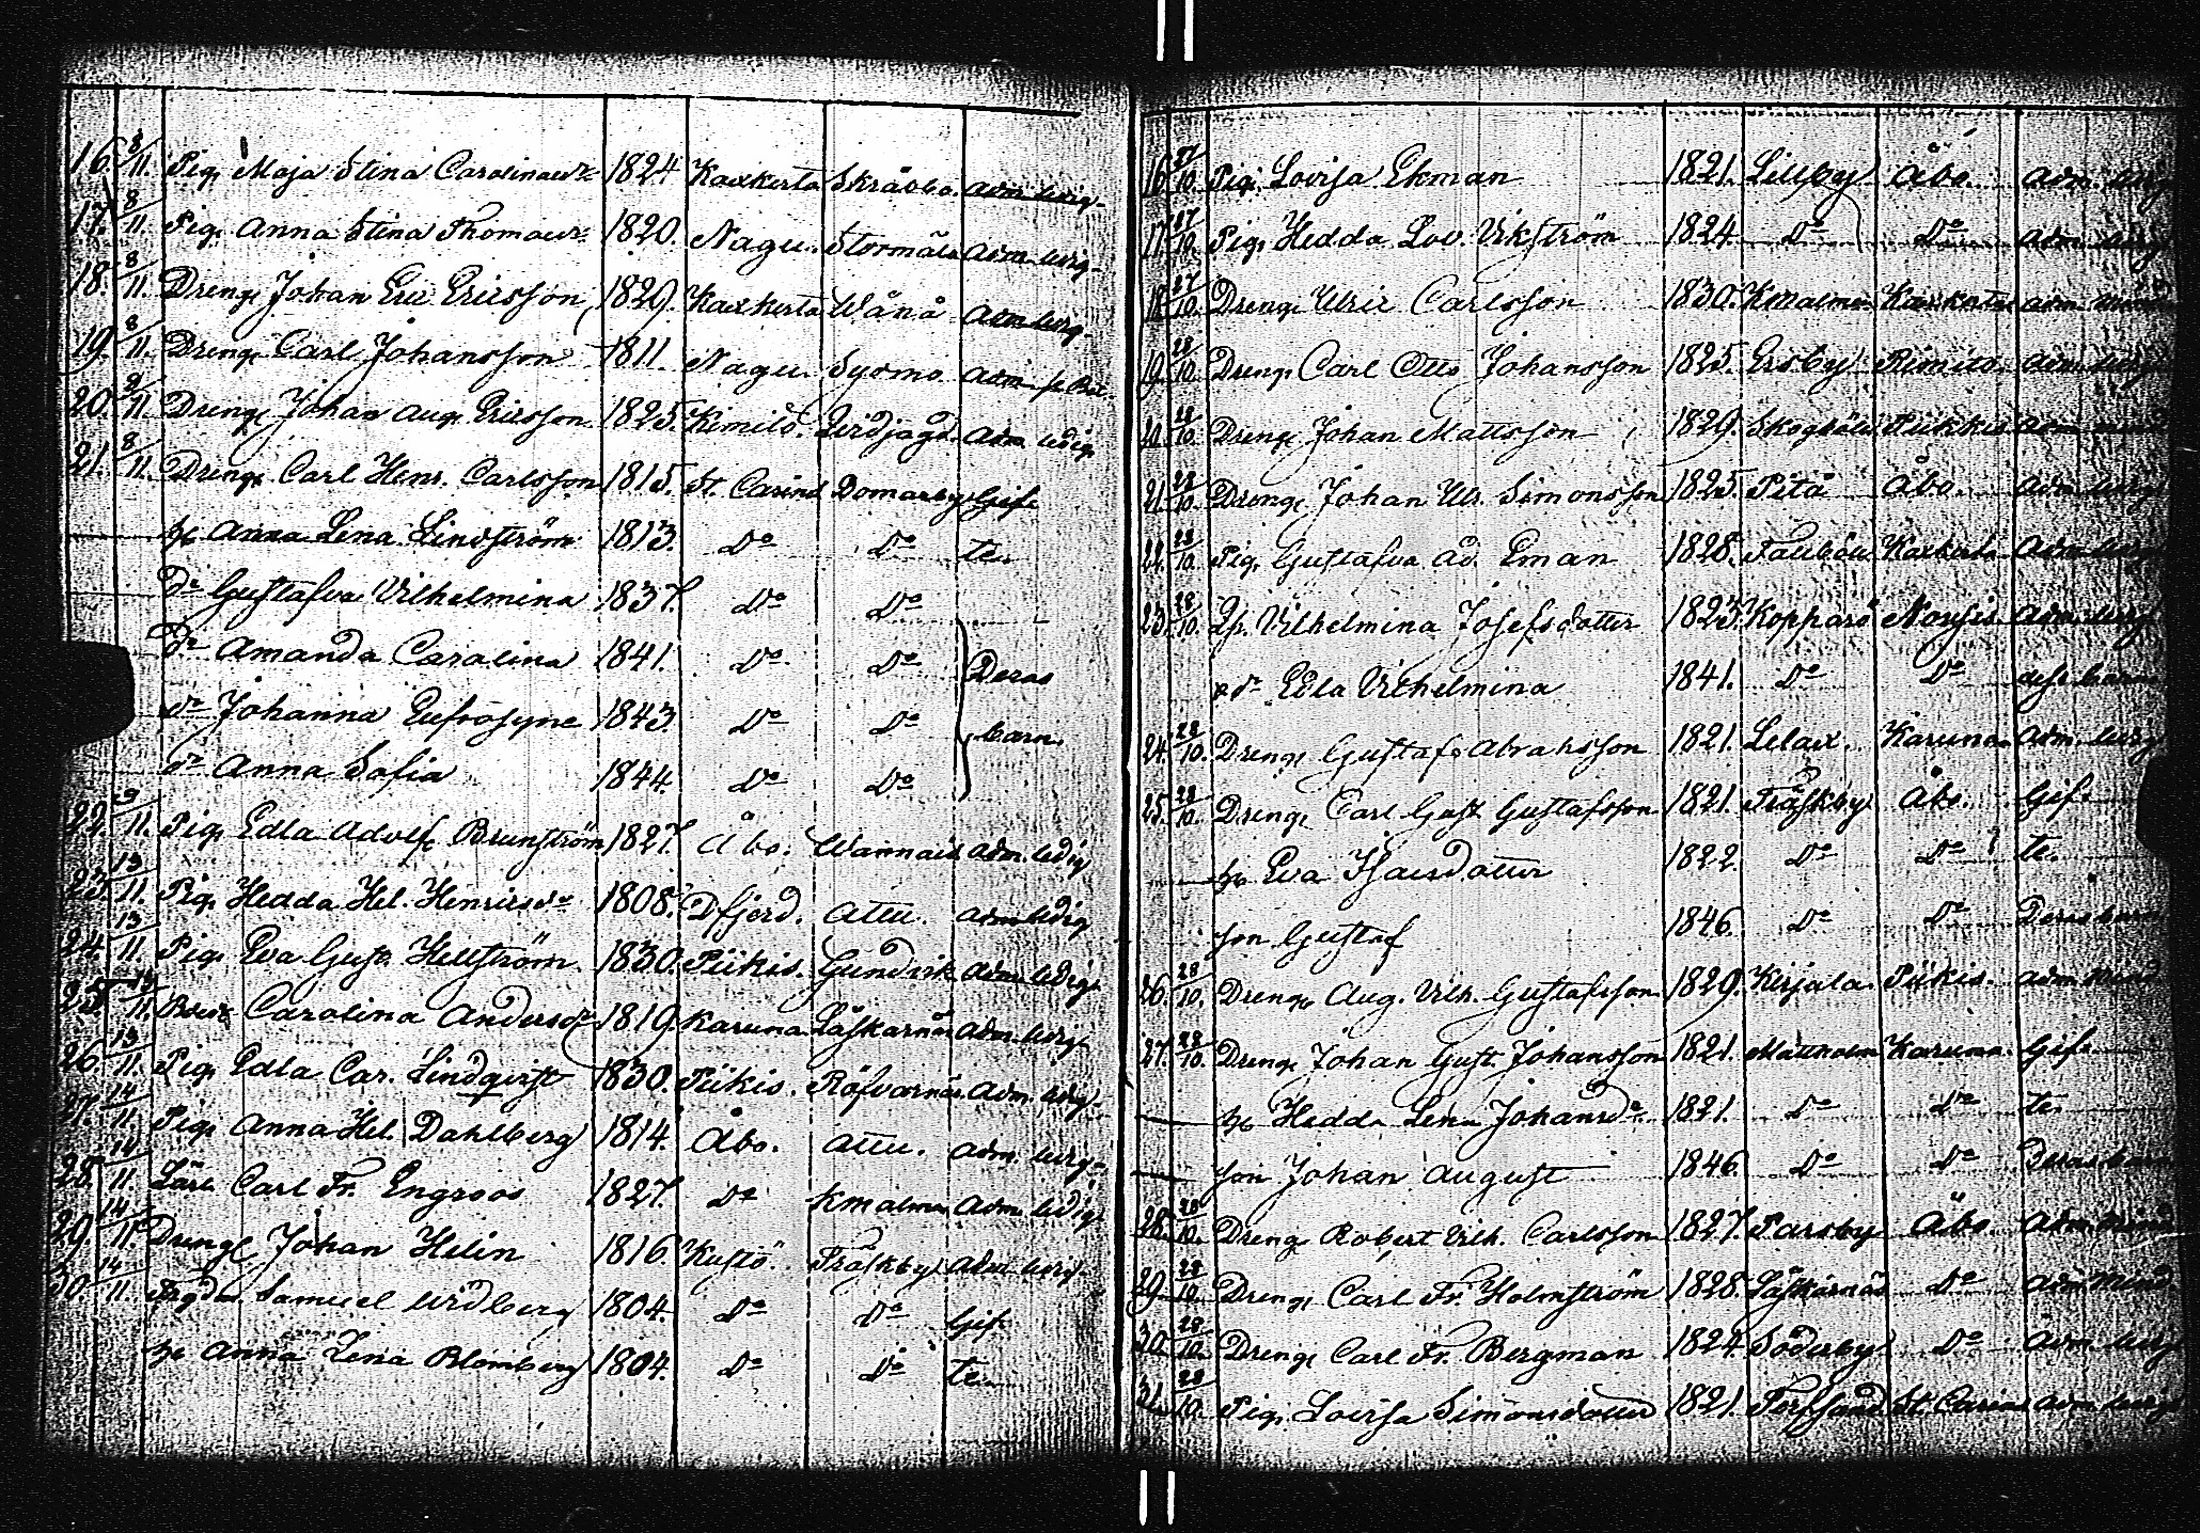 16. 8/11. Pig. Maja Stina Carolinadr 1824 Kaxkerta Skräbbo adm. ledig.
17. 8/11. Pig. Anna Stina Thomadr 1820. Nagu. Stormäl adm. ledig.
18. 8/11. Dreng. Johan Eric Ericsson 1829. Kaxkerta Wånå adm ledig.
19. 8/11. Dreng. Carl Johansson 1811. Nagu. Sydmo adm
20. 9/11. Dreng. Johan Aug. Ericsson 1825. Kimito. adm ledig.
21. 8/11. Dreng. Carl Henr. Carlsson 1815. St. Carins Domarby Gif.
h. Anna Lena Lindström 1813. Do Do te.
dr Gustafva Vilhelmina 1837. Do Do
dr Amanda Carolina 1841. Do Do Deras
dr Johanna Eufrosyne 1843. Do Do barn.
dr Anna Sofia 1844. Do Do
22. 9/11. Pig. Edla Adolf. Brunström 1827. Åbo. Wannais adm. ledig
23. 13/11. Pig. Hedda Hel. Henricsdr 1808. Dfjerd. Attu. adm ledig
24. 13/11. Pig. Eva Gust. Hellström. 1830. Piikis. Gundvik adm. ledig.
25. 13/11. Carolina Andersdr 1819. Karuna Läskarnäs adm. ledig.
26. 13/11. Pig. Edla Car. Lindqvist 1830. Piikis. Röfvarnäs. adm. ledig.
27. 14/11. Pig. Anna Hel. Dahlberg 1814. Åbo. Attu. adm. ledig.
28. 14/11 Lärl. Carl Fr. Engroos 1827. Do Kmalmen adm. ledig.
29. 14/11. Dreng. Johan Helin 1816. Kustö. Träskby adm ledig.
30. 14/11. Samuel Widberg 1804. Do Do Gif.
h. Anna Lena Blomberg 1804. Do Do te.
16. 27/10. Pig. Lovisa Ekman 1821. Lillby Åbo. adm. ledig
17. 27/10. Pig. Hedda Lov. Vikström 1824. Do Do adm. ledig
18. 27/10. Dreng. Ulric Carlsson 1830. Kmalmen Kaxkerta adm.
19. 28/10. Dreng. Carl Otto Johansson 1825. Ersby Rimito adm. ledig
20. 28/10. Dreng. Johan Mattsson 1829. Skogböle Piikkis adm. mind
21. 28/10. Dreng. Johan Ulr. Simonsson 1825. Pitå Åbo. adm. ledig
22. 28/10. Pig. Gustafva Ad. Eman 1828. Kaxkerta adm. ledig
23. 28/10. Qp. Vilhelmina Josefsdotter 1823. Kopparö Nousis. adm. ledig
dr Edla Vilhelmina 1841. Do Do barn
24. 28/10. Dreng. Gustaf Abrahsson 1821. Lelax. Karuna. adm. ledig
25. 28/10. Dreng. Carl Gust Gustafsson 1821. Träskby Åbo. Gif.
h. Eva Isacsdotter 1822. Do Do te.
son Gustaf 1846. Do Do Deras barn
26. 28/10. Dreng. Aug. Vilh. Gustafsson 1829. Kirjala. Piikis. adm. Mind
27. 28/10. Dreng. Johan Gust. Johansson 1821. Mattholm Karuna. Gif.
h. Hedda Lena Johansdr 1821. Do Do te.
son Johan August 1846. Do Do Deras barn
28. 28/10. Dreng. Robert Vilh. Carlsson 1827. Parsby Åbo adm. Mind
29. 28/10. Dreng. Carl Fr. Holmström 1828. Läskarnäs Do adm. Mind.
30. 28/10. Dreng. Carl Fr. Bergman 1824. Söderby Do adm. ledig
31. 28/10. Pig. Lovisa Simonsdotter 1821. Torfsund St. Carins adm. ledig